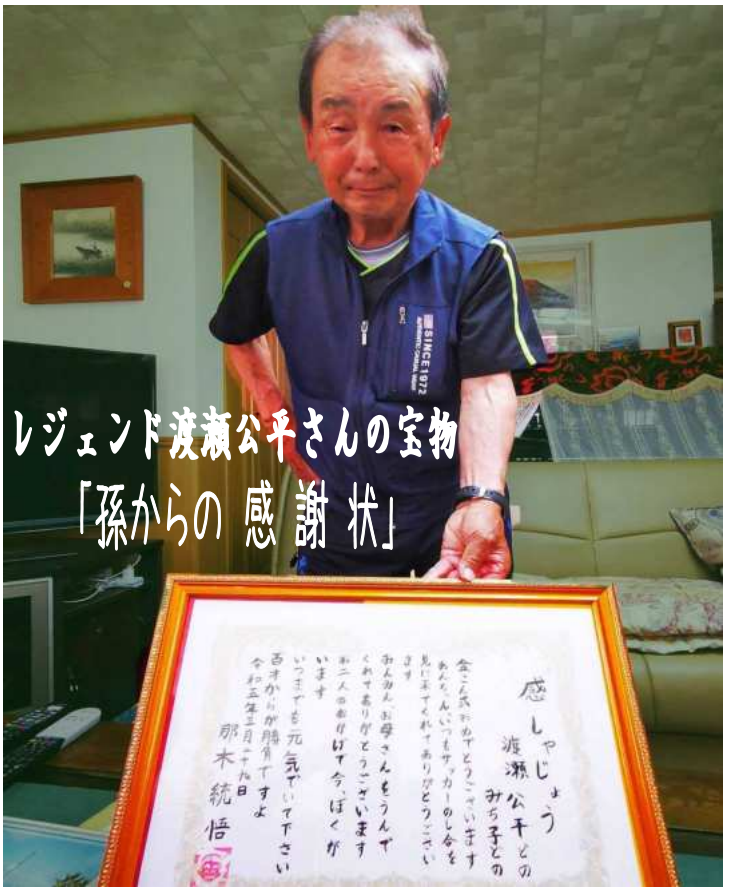 レジェンド渡瀬公平さんの宝物
「孫からの 感 謝 状」
SINCE1972
AUTHENTIC CASUAL WEAR
感しゃじょう
渡瀬公平どの
みち子どの
金こん式おめでとうございます
あんちゃんいつもサッカーのし合を
見に来てくれてありがとうござい
ます
みんみん、お母さんをうんで
くれてありがとうございます
お二人のおかげで今、ぼくが
います
いつまでも元気でいて下さい
百才からが勝負ですよ
令和五年三月二十九日
那木統悟